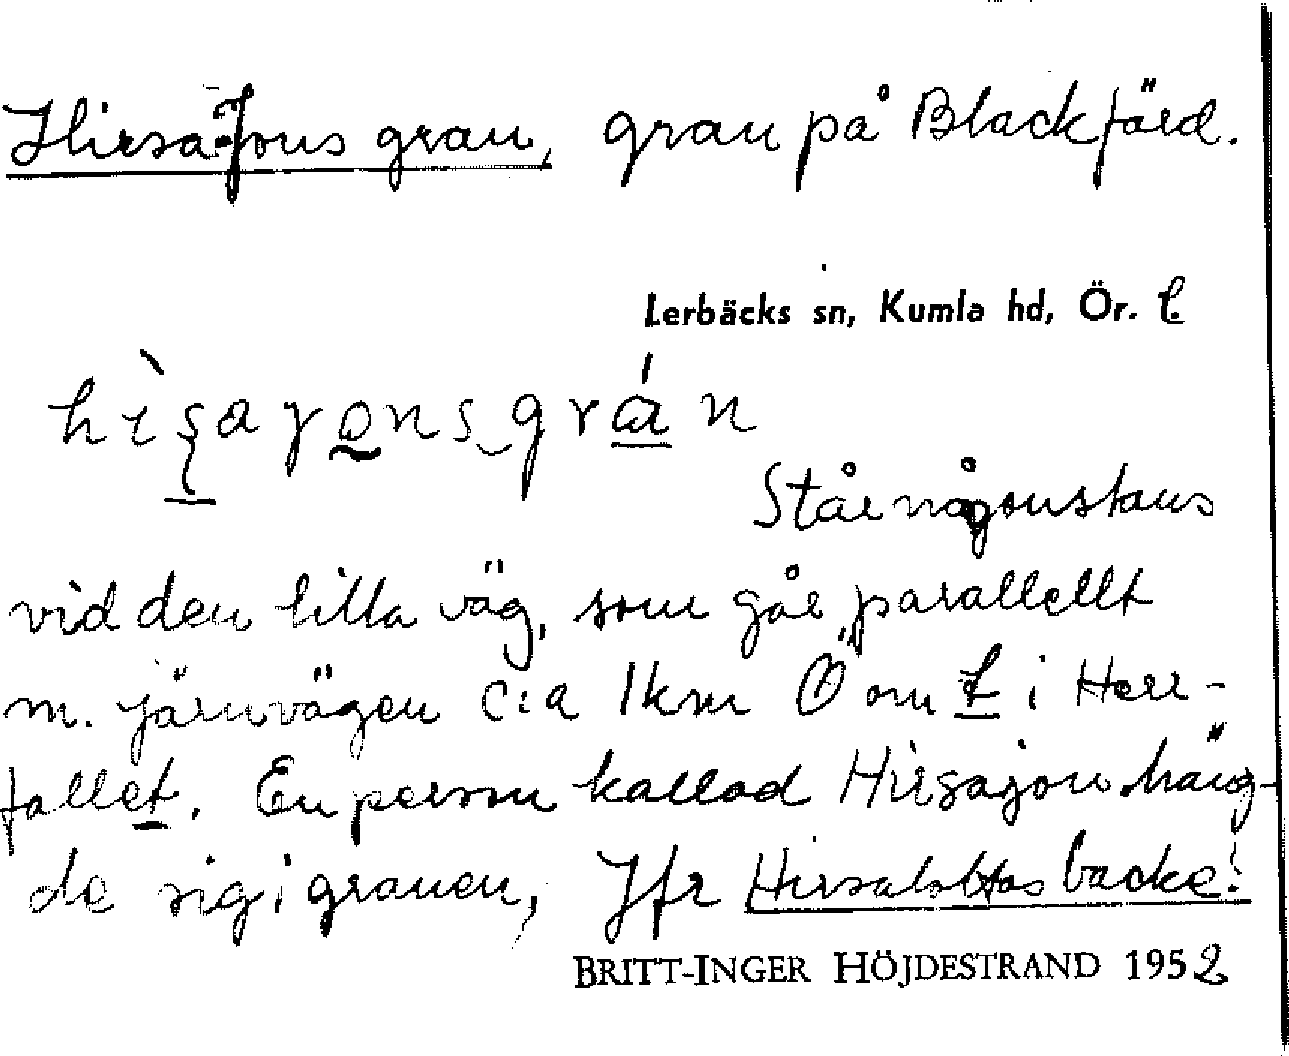 Hirsa-Jons gran, gran på Blackfärd.
Lerbäcks sn, Kumla hd, Ör. l.
Står någonstans
vid den lilla väg, som går parallellt
m. järnvägen c:a 1 km Ö om t i Herr-
fallet. En person kallad Hirsajon häng-
de sig i granen, Jfr Hirsalottas backe!
BRITT-INGER HÖJDESTRAND 1952